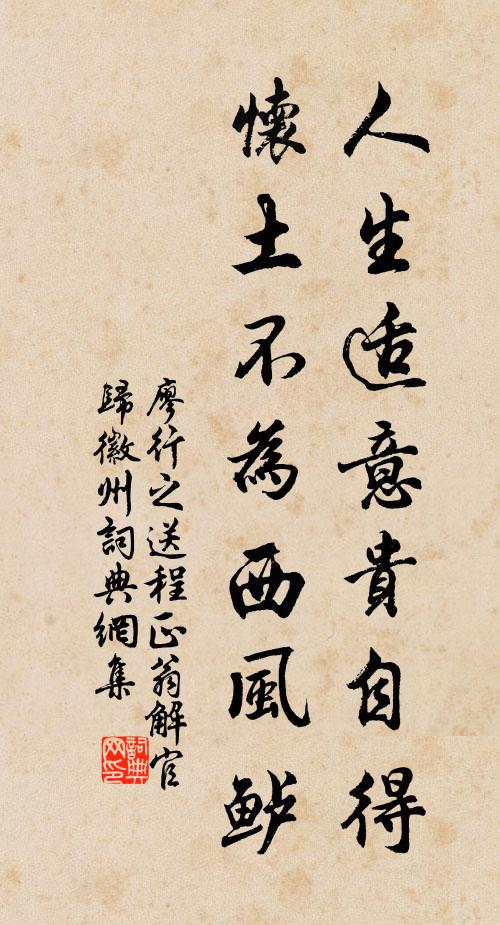 人生适意貴自得
懷土不為西風鲈
廖行之送程正翁解官
歸徽州詞典網集
詞典网印